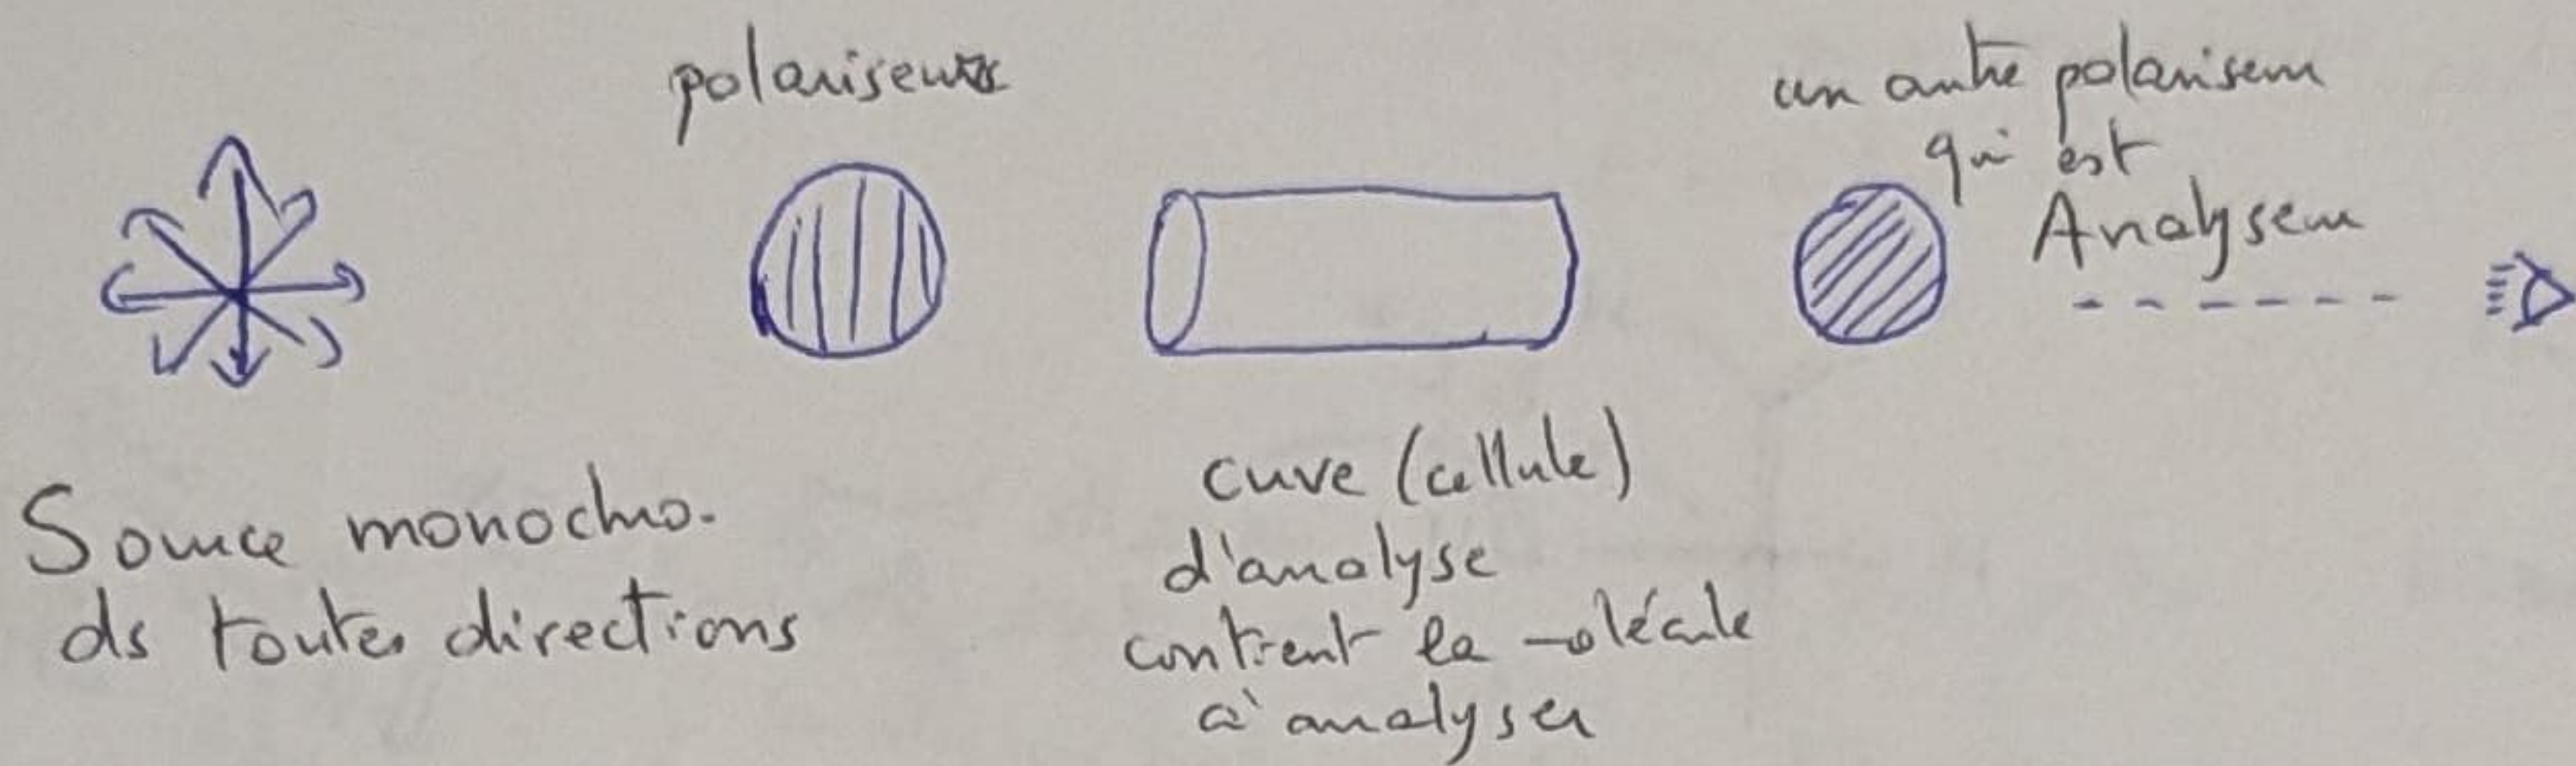 polariseur
un autre polariseur
qui est
Analyseur
Source monochro.
ds toutes directions
cuve (cellule)
d'analyse
contient la molécule
à analyser